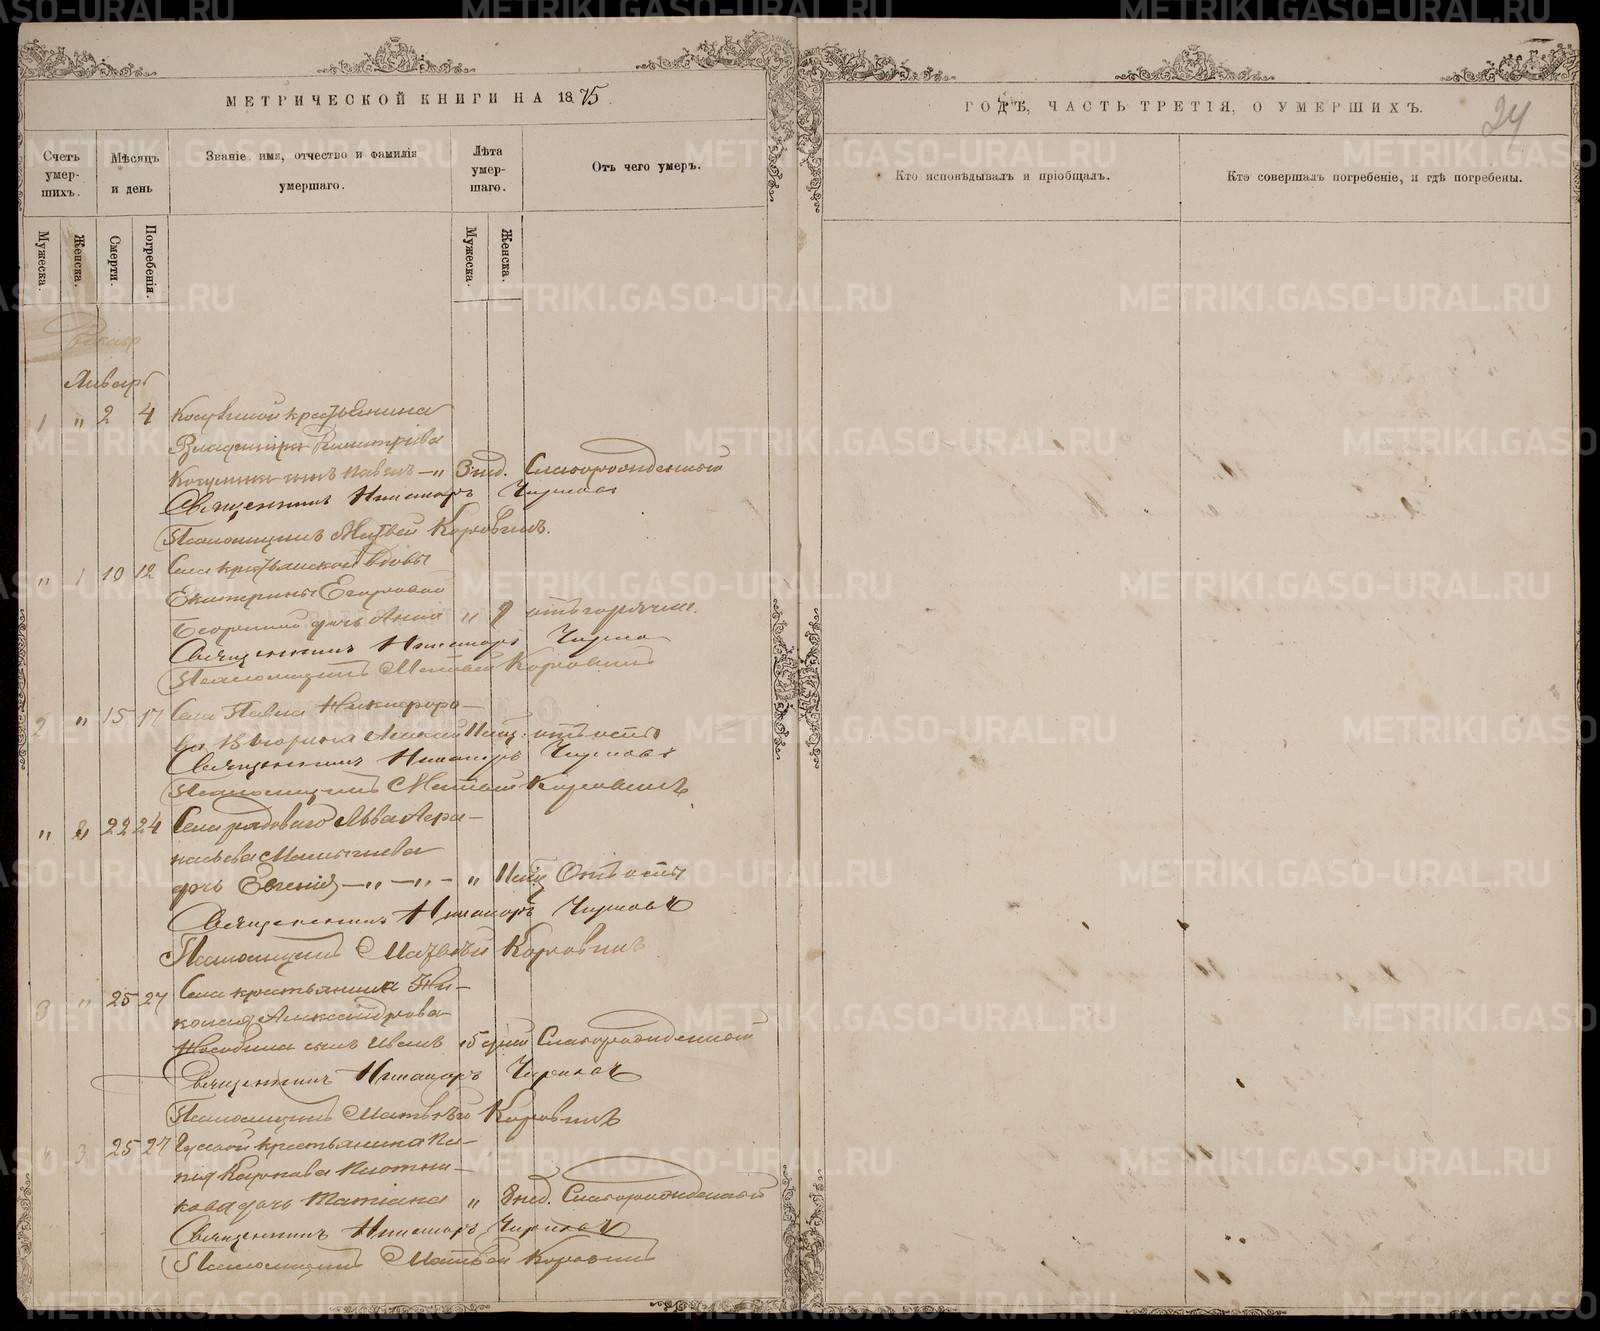 МЕТРИЧЕСКОЙ КНИГИ НА 1875
ГОДЪ, ЧАСТЬ ТРЕТІЯ, О УМЕРШИХЪ.
24
Счетъ умер-шихъ.
Мѣсяцъ и день
Званіе имя, отчество и фамилія умершаго.
Лѣта умер-шаго.
Отъ чего умеръ.
Кто исповѣдывалъ и пріобщалъ.
Кто совершалъ погребеніе, и гдѣ погребены.
Мужеска.
Женска.
Смерти.
Погребенія.
Мужеска.
Женска.
Январь
1 " 2 4 крестьянина
Владиміра Димитріева
сынъ Павелъ —" 3 нед. Слаборожденной
Священникъ Никаноръ
Псаломщикъ Матвей Коровинъ.
" 1 10 12 Села крестьянской вдовы
Екатерины Егоровой
дочь Анна " отъ горячки.
Священникъ Никаноръ
Псаломщикъ Матвей Коровинъ
2 " 15 17 Села Павла Никифоро-
ва Алексей
Священникъ Никаноръ
Псаломщикъ Матвей Коровинъ
" 2 22 24 Села рядоваго Льва Афа-
насьева
дочь Евгенія —"—"— " Отъ оспы
Священникъ Никаноръ
Псаломщикъ Матвѣй Коровинъ
3 " 25 27 Села крестьянина Ни-
колая Александрова
сынъ Иванъ 15 дней Слаборожденной
Священникъ Никаноръ
Псаломщикъ Матвѣй Коровинъ
" 3 25 27 крестьянина
Плотни-
кова дочь Татіана " 8 нед. Слаборожденной
Священникъ Никаноръ
Псаломщикъ Матвей Коровинъ
METRIKI.GASO-URAL.RU